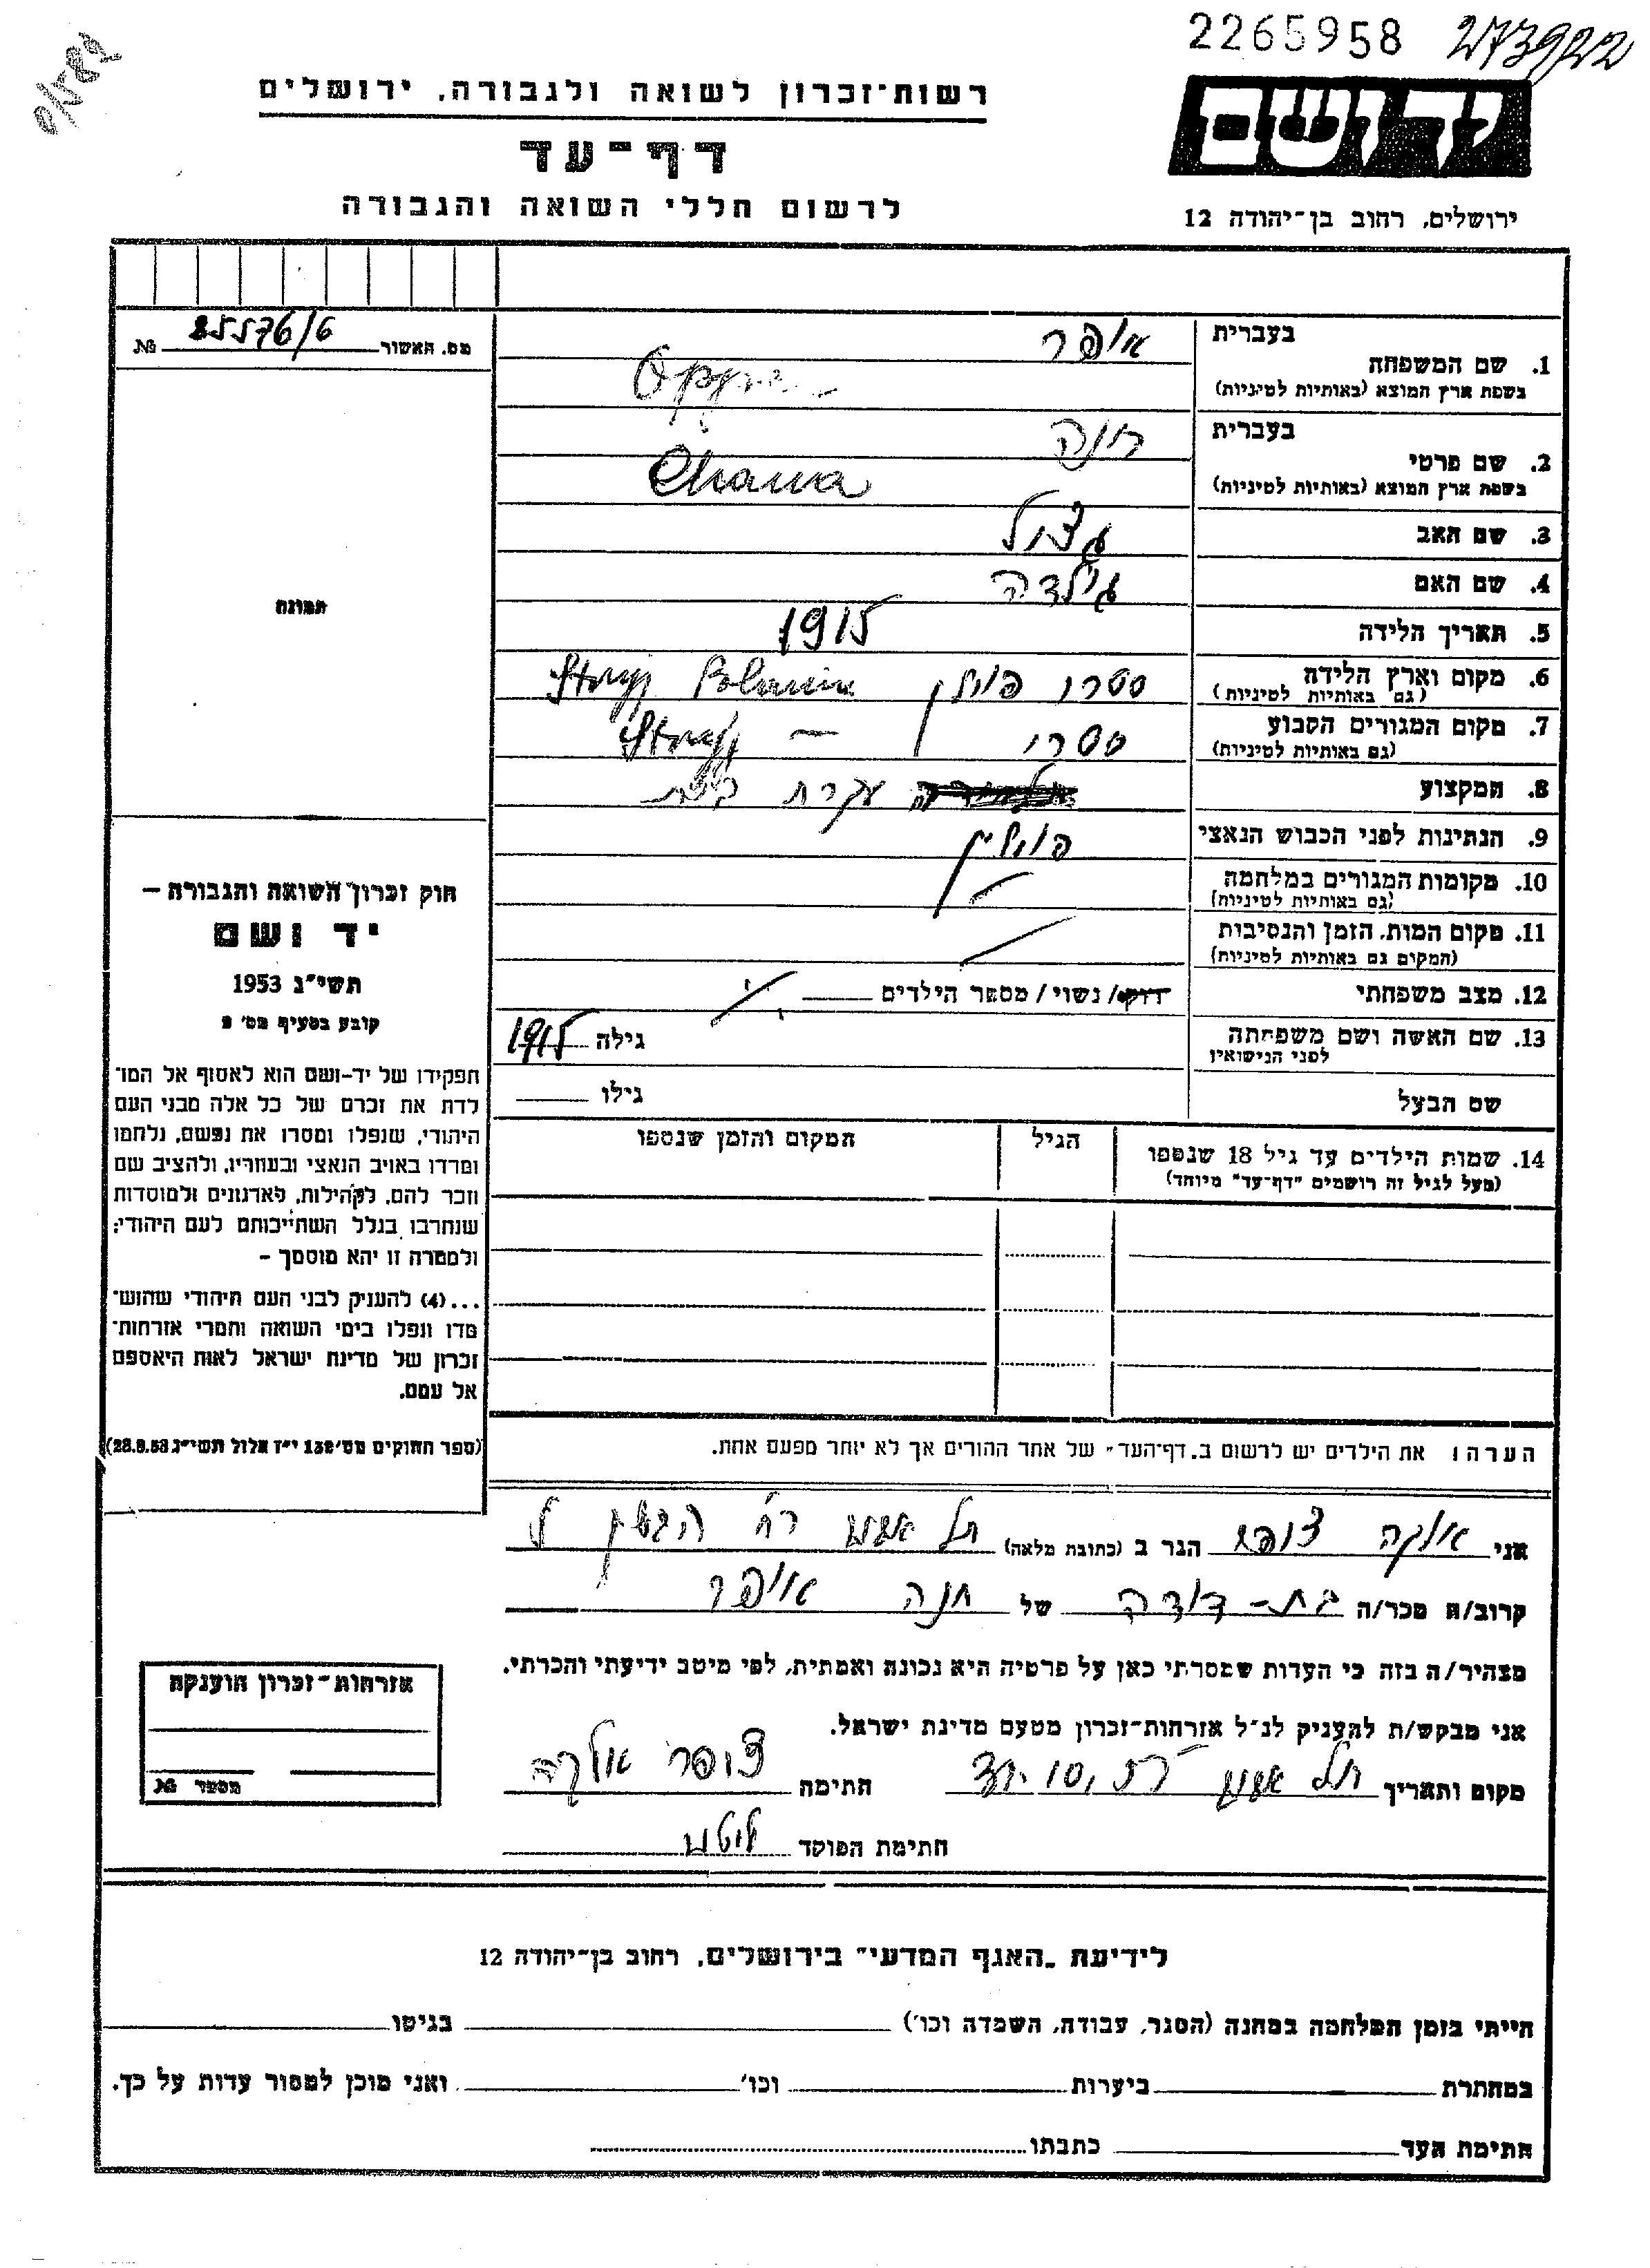 2265958
273922
רשות־זכרון לשואה ולגבורה, ירושלים
יד ושם
דף־עד
לרשום חללי השואה והגבורה
ירושלים, רחוב בן־יהודה 12
מס. האשור № 85576/6
תמונה
1. שם המשפחה בעברית אופר
בשפת ארץ המוצא (באותיות לטיניות)
2. שם פרטי בעברית
בשפת ארץ המוצא (באותיות לטיניות) Chawa
3. שם האב
4. שם האם גילדה
5. תאריך הלידה 1915
6. מקום וארץ הלידה סטרי פולין Stryj
(גם באותיות לטיניות)
7. מקום המגורים הקבוע סטרי Stryj
(גם באותיות לטיניות)
8. המקצוע עקרת בית
9. הנתינות לפני הכבוש הנאצי פולין
10. מקומות המגורים במלחמה
(גם באותיות לטיניות)
11. מקום המות, הזמן והנסיבות
(המקום גם באותיות לטיניות)
12. מצב משפחתי רווק/ נשוי/ מספר הילדים
13. שם האשה ושם משפחתה גילה 1915
לפני הנישואין
שם הבעל גילו
14. שמות הילדים עד גיל 18 שנספו הגיל המקום והזמן שנספו
(מעל לגיל זה רושמים "דף־עד" מיוחד)
הערה: את הילדים יש לרשום ב„דף־העד" של אחד ההורים אך לא יותר מפעם אחת.
חוק זכרון השואה והגבורה —
יד ושם
תשי"ג 1953
קובע בסעיף מס' 2
תפקידו של יד-ושם הוא לאסוף אל המו־
לדת את זכרם של כל אלה מבני העם
היהודי, שנפלו ומסרו את נפשם, נלחמו
ומרדו באויב הנאצי ובעוזריו, ולהציב שם
וזכר להם, לקהילות, לארגונים ולמוסדות
שנחרבו בגלל השתייכותם לעם היהודי;
ולמטרה זו יהא מוסמך —
...(4) להעניק לבני העם היהודי שהוש־
מדו ונפלו בימי השואה והמרי אזרחות־
זכרון של מדינת ישראל לאות היאספם
אל עמם.
(ספר החוקים מס' 132 י"ז אלול תשי"ג 28.8.53)
אני הגר ב (כתובת מלאה) תל אביב רח'
קרוב/ה מכר/ה בת-דודה של חנה אופר
מצהיר/ה בזה כי העדות שמסרתי כאן על פרטיה היא נכונה ואמתית, לפי מיטב ידיעתי והכרתי.
אני מבקש/ת להעניק לנ"ל אזרחות־זכרון מטעם מדינת ישראל.
מקום ותאריך תל אביב חתימה
חתימת הפוקד
אזרחות־זכרון הוענקה
מספר №
לידיעת „האגף המדעי" בירושלים, רחוב בן־יהודה 12
הייתי בזמן המלחמה במחנה (הסגר, עבודה, השמדה וכו') בגיטו
במחתרת ביערות וכו' ואני מוכן למסור עדות על כך.
חתימת העד כתבתו